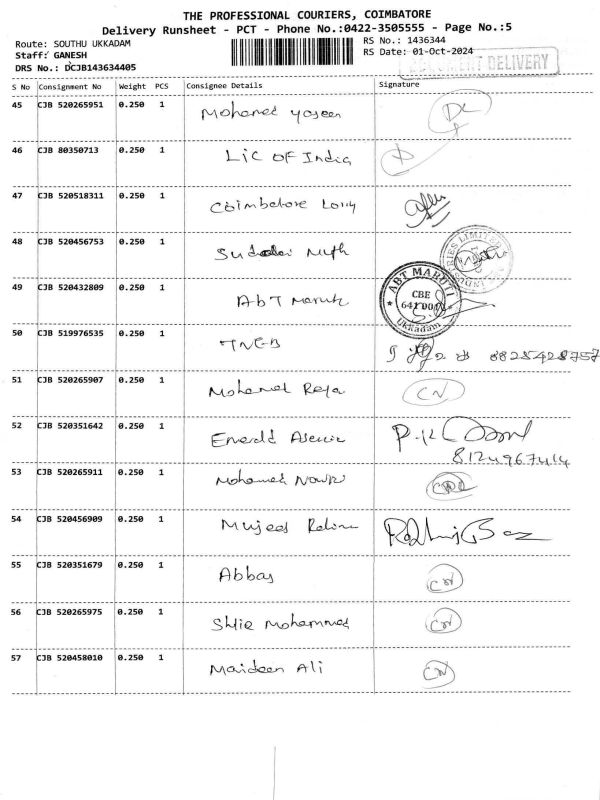 THE PROFESSIONAL COURIERS, COIMBATORE
Delivery Runsheet - PCT - Phone No.:0422-3505555 - Page No.:5
Route: SOUTHU UKKADAM
RS No.: 1436344
Staff: GANESH
RS Date: 01-Oct-2024
DRS No.: DCJB143634405
DOCUMENT DELIVERY
S No Consignment No Weight PCS Consignee Details Signature
45 CJB 520265951 0.250 1 Mohamed yaseen DL
46 CJB 80350713 0.250 1 LIC OF India
47 CJB 520518311 0.250 1 Coimbatore Lorry
48 CJB 520456753 0.250 1
49 CJB 520432809 0.250 1 AbT Maruti
ABT MARUTI
CBE
641 001
Ukkadam
50 CJB 519976535 0.250 1 TNEB 8825428757
51 CJB 520265907 0.250 1 Mohamed Raja CN
52 CJB 520351642 0.250 1 Emerald P.K
8124967414
53 CJB 520265911 0.250 1 Mohamed
54 CJB 520456909 0.250 1 Mujeeb
55 CJB 520351679 0.250 1 Abbas CN
56 CJB 520265975 0.250 1 Mohammed CN
57 CJB 520458010 0.250 1 Maideen Ali CN